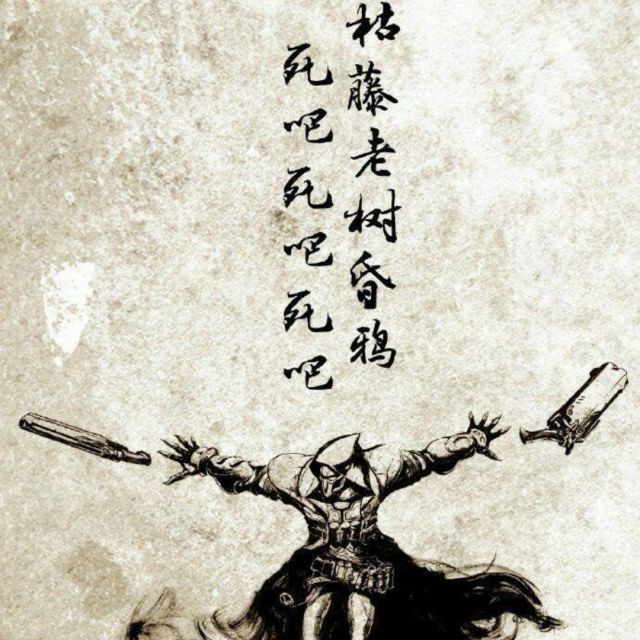 枯藤老树昏鸦
死吧死吧死吧